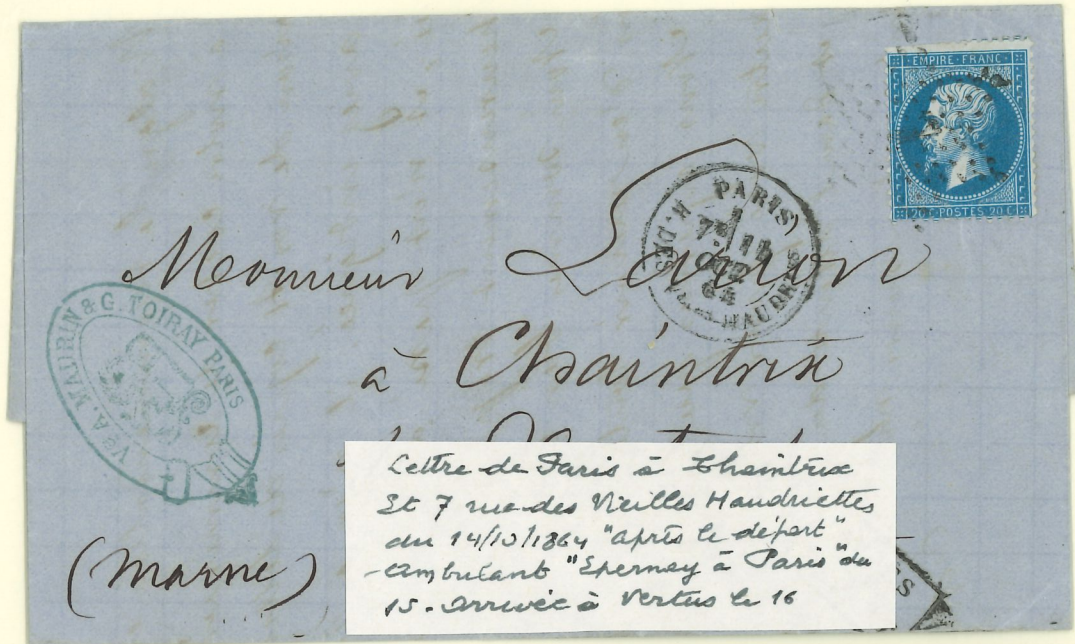 EMPIRE · FRANC ·
20 C · POSTES 20 C
PARIS
7E 14
OCT
64
R. DES
HAUDRTES
Monsieur
à Chaintrix
Ve A. MAURIN & G. TOIRAY PARIS
(Marne)
Lettre de Paris à Chaintrix
Et 7 rue des Vieilles Haudriettes
du 14/10/1864 "après le départ"
-ambulant "Epernay à Paris" du
15. arrivée à Vertus le 16